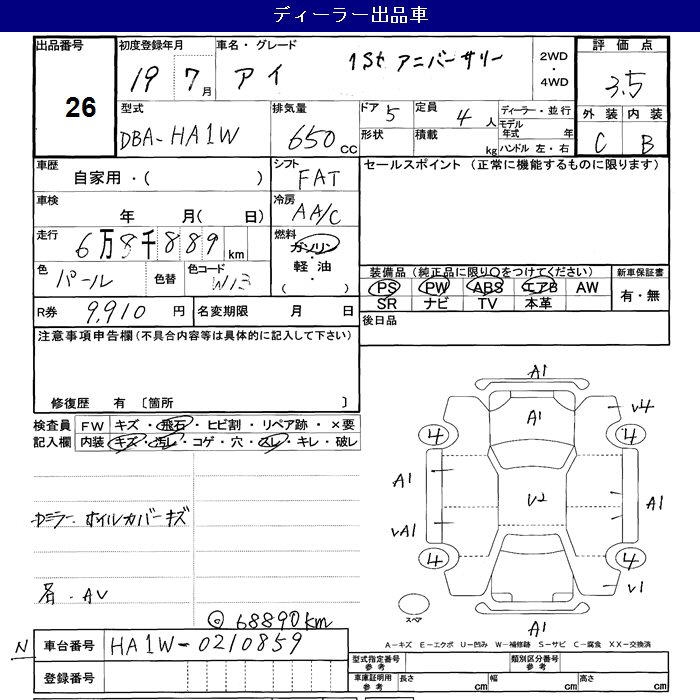 ディーラー出品車
出品番号 初度登録年月 車名・グレード 2WD・4WD 評価点
26 19 7月 アイ 1St アニバーサリー 3.5
型式 排気量 ドア 5 定員 4人 ディーラー・並行 外装 内装
DBA-HA1W 650cc 形状 積載 kg モデル年式 年 ハンドル 左・右 C B
車歴 シフト セールスポイント (正常に機能するものに限ります)
自家用・( ) FAT
車検 年 月( 日) 冷房 AA/C
走行 6万8千889km 燃料 ガソリン・軽油・( )
色 パール 色替 色コード W13
装備品 (純正品に限り○をつけてください) 新車保証書
PS PW ABS エアB AW 有・無
SR ナビ TV 本革
R券 9,910円 名変期限 月 日 後日品
注意事項申告欄 (不具合内容等は具体的に記入して下さい)
修復歴 有 〔箇所 〕
検査員 FW キズ・飛石・ヒビ割・リペア跡・×要
記入欄 内装 キズ・汚レ・コゲ・穴・スレ・キレ・破レ
ホイルカバーキズ
AV
◎68890km
N 車台番号 HA1W-0210859
登録番号
A1
A1 V4
4 4
A1 V2 A1
VA1
4 4
V1
スペア A1
A-キズ E-エクボ U-凹み W-補修跡 S-サビ C-腐食 XX-交換済
型式指定番号 参考 類別区分番号 参考
車庫証明用 参考 長さ cm 幅 cm 高さ cm